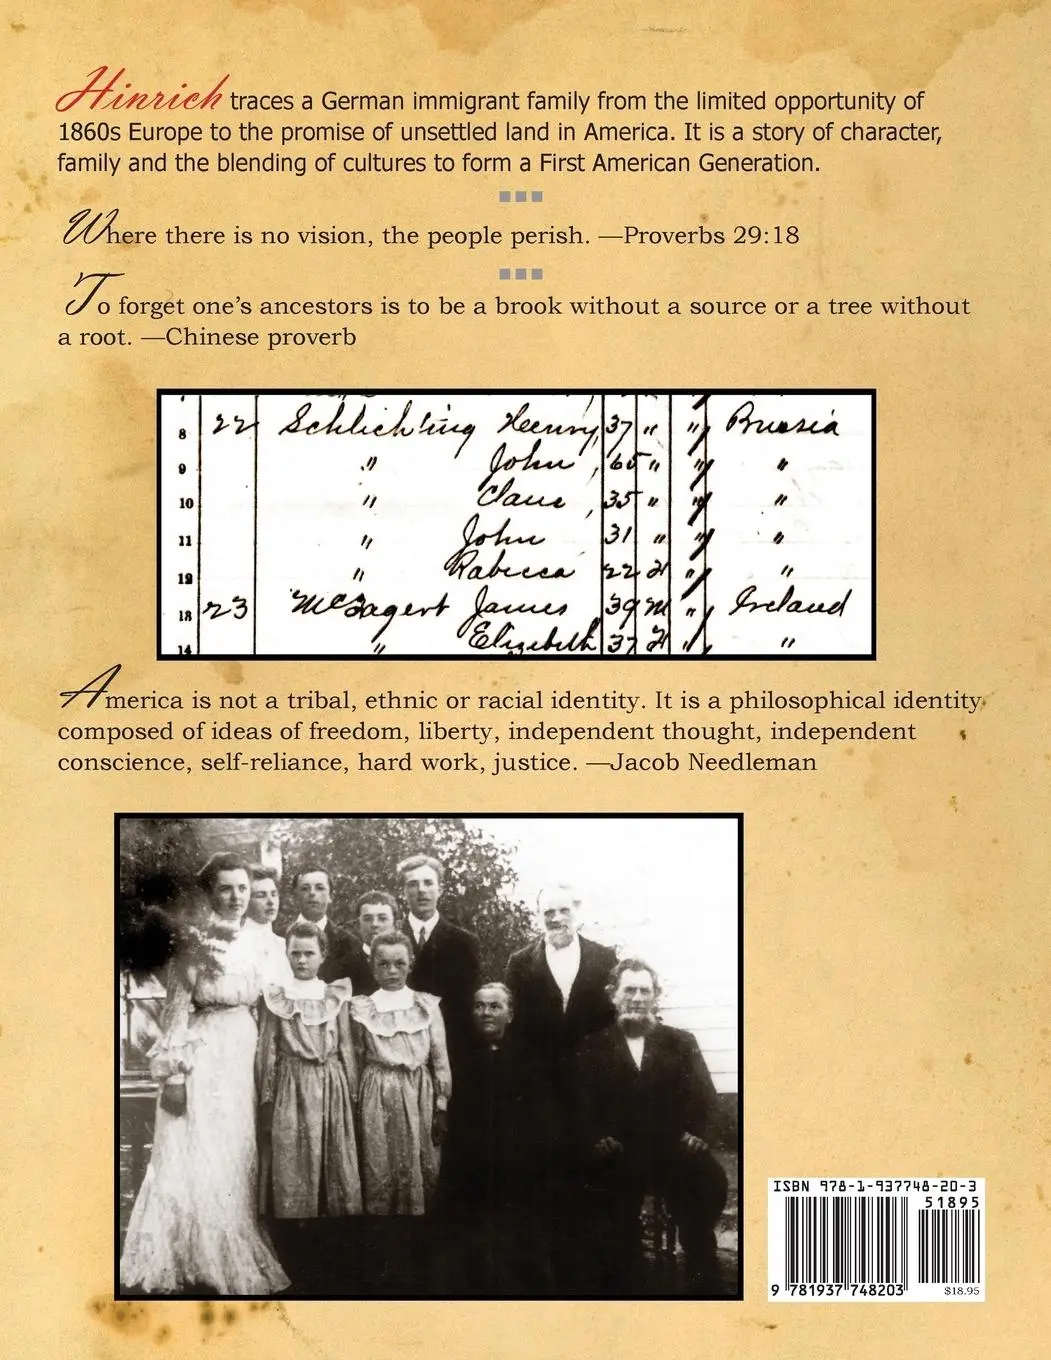 Hinrich traces a German immigrant family from the limited opportunity of
1860s Europe to the promise of unsettled land in America. It is a story of character,
family and the blending of cultures to form a First American Generation.
Where there is no vision, the people perish. —Proverbs 29:18
To forget one’s ancestors is to be a brook without a source or a tree without
a root. —Chinese proverb
8 22 Schlichting Henry, 37 " " Prussia
9 " John, 65 " " "
10 " Claus, 35 " " "
11 " John 31 " " "
12 " Rabecca 22 F " "
13 23 James 39 M " Ireland
14 " Elizabeth 37 F " "
America is not a tribal, ethnic or racial identity. It is a philosophical identity
composed of ideas of freedom, liberty, independent thought, independent
conscience, self-reliance, hard work, justice. —Jacob Needleman
ISBN 978-1-937748-20-3
51895
9 781937 748203
$18.95